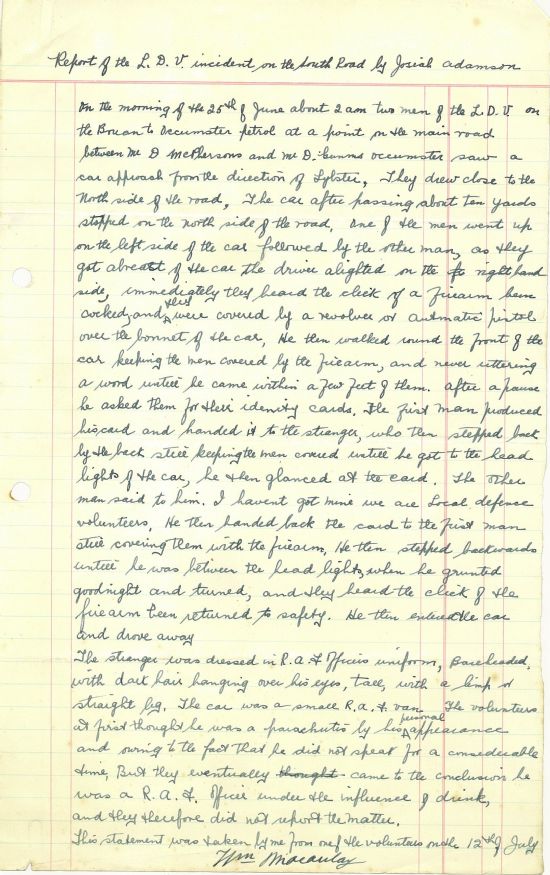 Report of the L. D. V. incident on the South Road by Josiah Adamson
On the morning of the 25th of June about 2 am two men of the L.D.V. on
the Bouan to Occumster petrol at a point on the main road
between Mr D McPhersons and Mr D. Gunns occumster saw a
car approach from the direction of Lybster, They drew close to the
North side of the road, The car after passing about ten yards
stopped on the north side of the road, one of the men went up
on the left side of the car followed by the other man, as they
got abreast of the car the driver alighted on the right hand
side, immediately they heard the click of a firearm been
cocked, and they were covered by a revolver or automatic pistol
over the bonnet of the car, He then walked round the front of the
car keeping the men covered by the firearm, and never uttering
a word untill he came within a few feet of them. After a pause
he asked them for their idenity cards. The first man produced
his card and handed it to the stranger, who then stepped back
by the back still keeping the men covered untill he got to the head
lights of the car, he then glanced at the card. The other
man said to him. I havent got mine we are Local defence
volunteers, He then handed back the card to the first man
still covering them with the firearm, He then stepped backwards
untill he was between the head lights, when he grunted
goodnight and turned, and they heard the click of the
firearm been returned to safety. He then entered the car
and drove away
The stranger was dressed in R.A.F Officers uniform, Bareheaded,
with dark hair hanging over his eyes, tall, with a limp or
straight leg. The car was a small R.A.F. van The volunteers
at first thought he was a parachutis by his personal appearance
and owing to the fact that he did not speak for a considerable
time, But they eventually thought came to the conclusion he
was a R.A.F. Officer under the influence of drink,
and they therefore did not report the matter.
This statement was taken by me from one of the volunteers on the 12th of July
Wm Macaulay